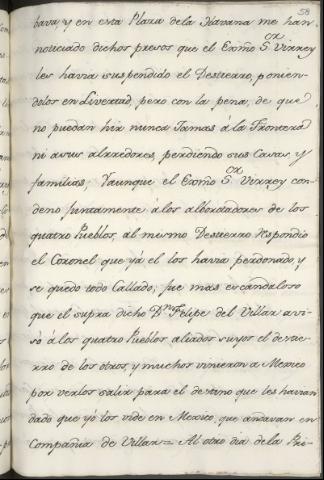 58
bava, y en esta Plaza dela Havana me han
noticiado dichos presos que el Exmo Sor Virrey
les havia suspendido el Destierro, ponien-
dolos en Livertad, pero con la pena, de que
no puedan hir nunca Jamas á la Frontera
ni asus alrredores, perdiendo sus Casas, y
familias, Yaunque el Exmo Sor Virrey con-
deno juntamente álos alborotadores de los
quatro Pueblos, al mismo Destierro respondio
el Coronel que yá el los havia perdonado, y
se quedo todo Callado, fue mas escandaloso
que el supra dicho Dn Felipe del Villar avi-
só á los quatro Pueblos aliados suyos el destier-
rro de los otros, y muchos vinieron a Mexico
por verlos salir para el destino que les havian
dado que yó los vide en Mexico, que andavan en
Compañia de Villar = Al otro dia dela Pri-